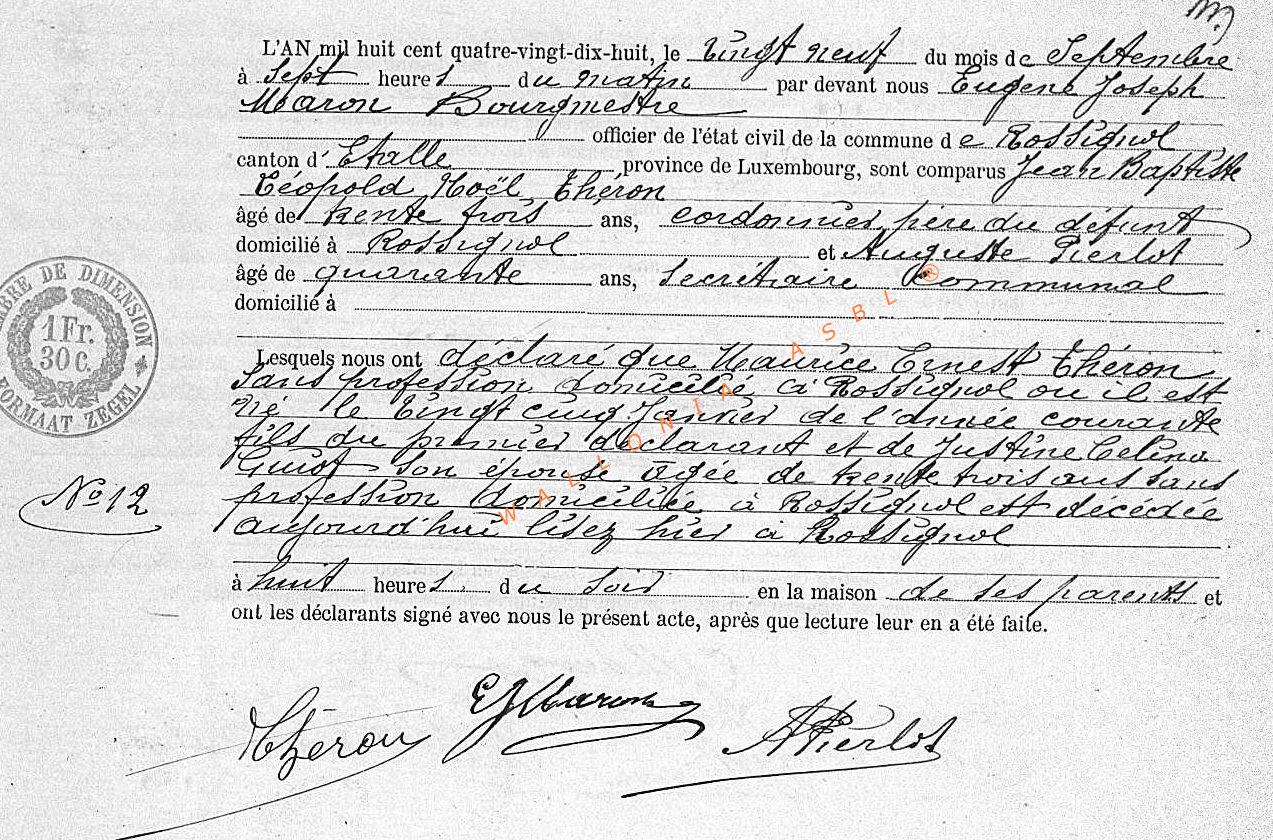 m)
L'AN mil huit cent quatre-vingt-dix-huit, le Vingt neuf du mois de Septembre
à Sept heures du matin par devant nous Eugène Joseph
Maron Bourgmestre
officier de l'état civil de la commune de Rossignol
canton d'Etalle, province de Luxembourg, sont comparus Jean Baptiste
Léopold Noël Théron
âgé de trente trois ans, cordonnier, père du défunt
domicilié à Rossignol et Auguste Pierlot
âgé de quarante ans, Secrétaire Communal
domicilié à
Lesquels nous ont déclaré que Maurice Ernest Théron
Sans profession domicilié à Rossignol ou il est
né le Vingt cinq Janvier de l'année courante
fils du premier déclarant et de Justine Celina
Guiot son épouse âgée de trente trois ans sans
profession domiciliée à Rossignol est décédée
aujourd'hui lisez hier à Rossignol
à huit heures du soir en la maison de ses parents et
ont les déclarants signé avec nous le présent acte, après que lecture leur en a été faite.
TIMBRE DE DIMENSION
1 Fr.
30 C.
FORMAAT ZEGEL
No 12
WALLONIA ASBL ®
Théron EJMaron APierlot